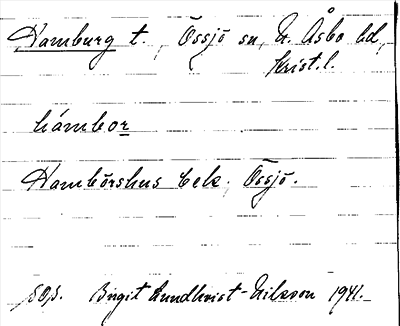 Hamburg t., Össjö sn, N. Åsbo hd,
Krist. l.
hámbor
Hambörshus bek. Össjö.
sog. Birgit Lundkvist-Nilsson 1941.